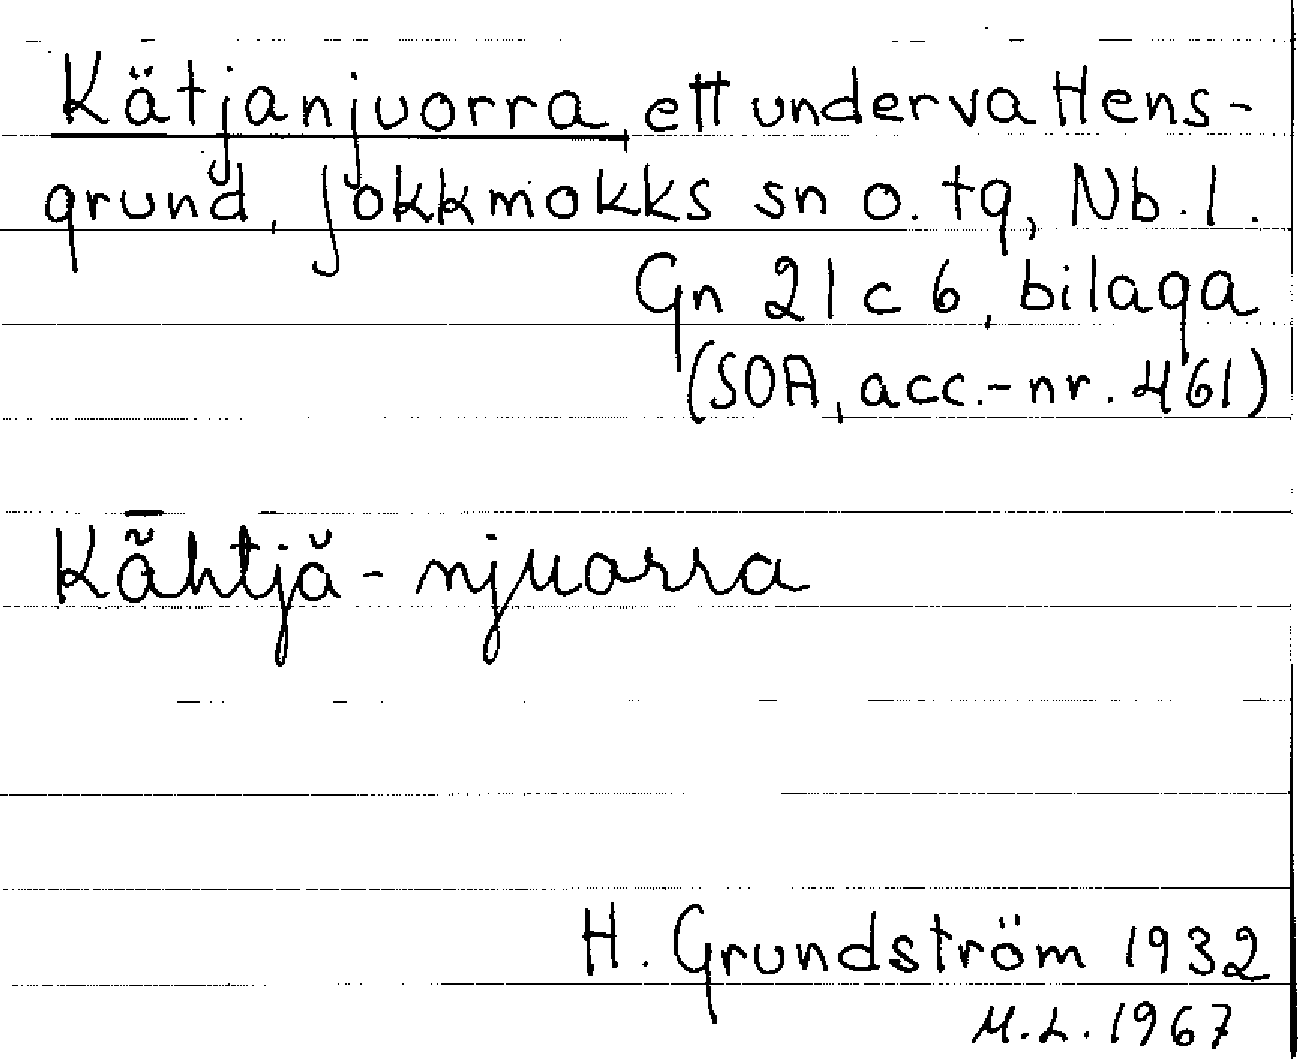 Kätjanjuorra ett undervattens-
grund, Jokkmokks sn o. tg, Nb. l.
Gn 21 c 6, bilaga
(SOA, acc.-nr. 461)
Kā̃htjă-njuorra
H. Grundström 1932
M.L. 1967